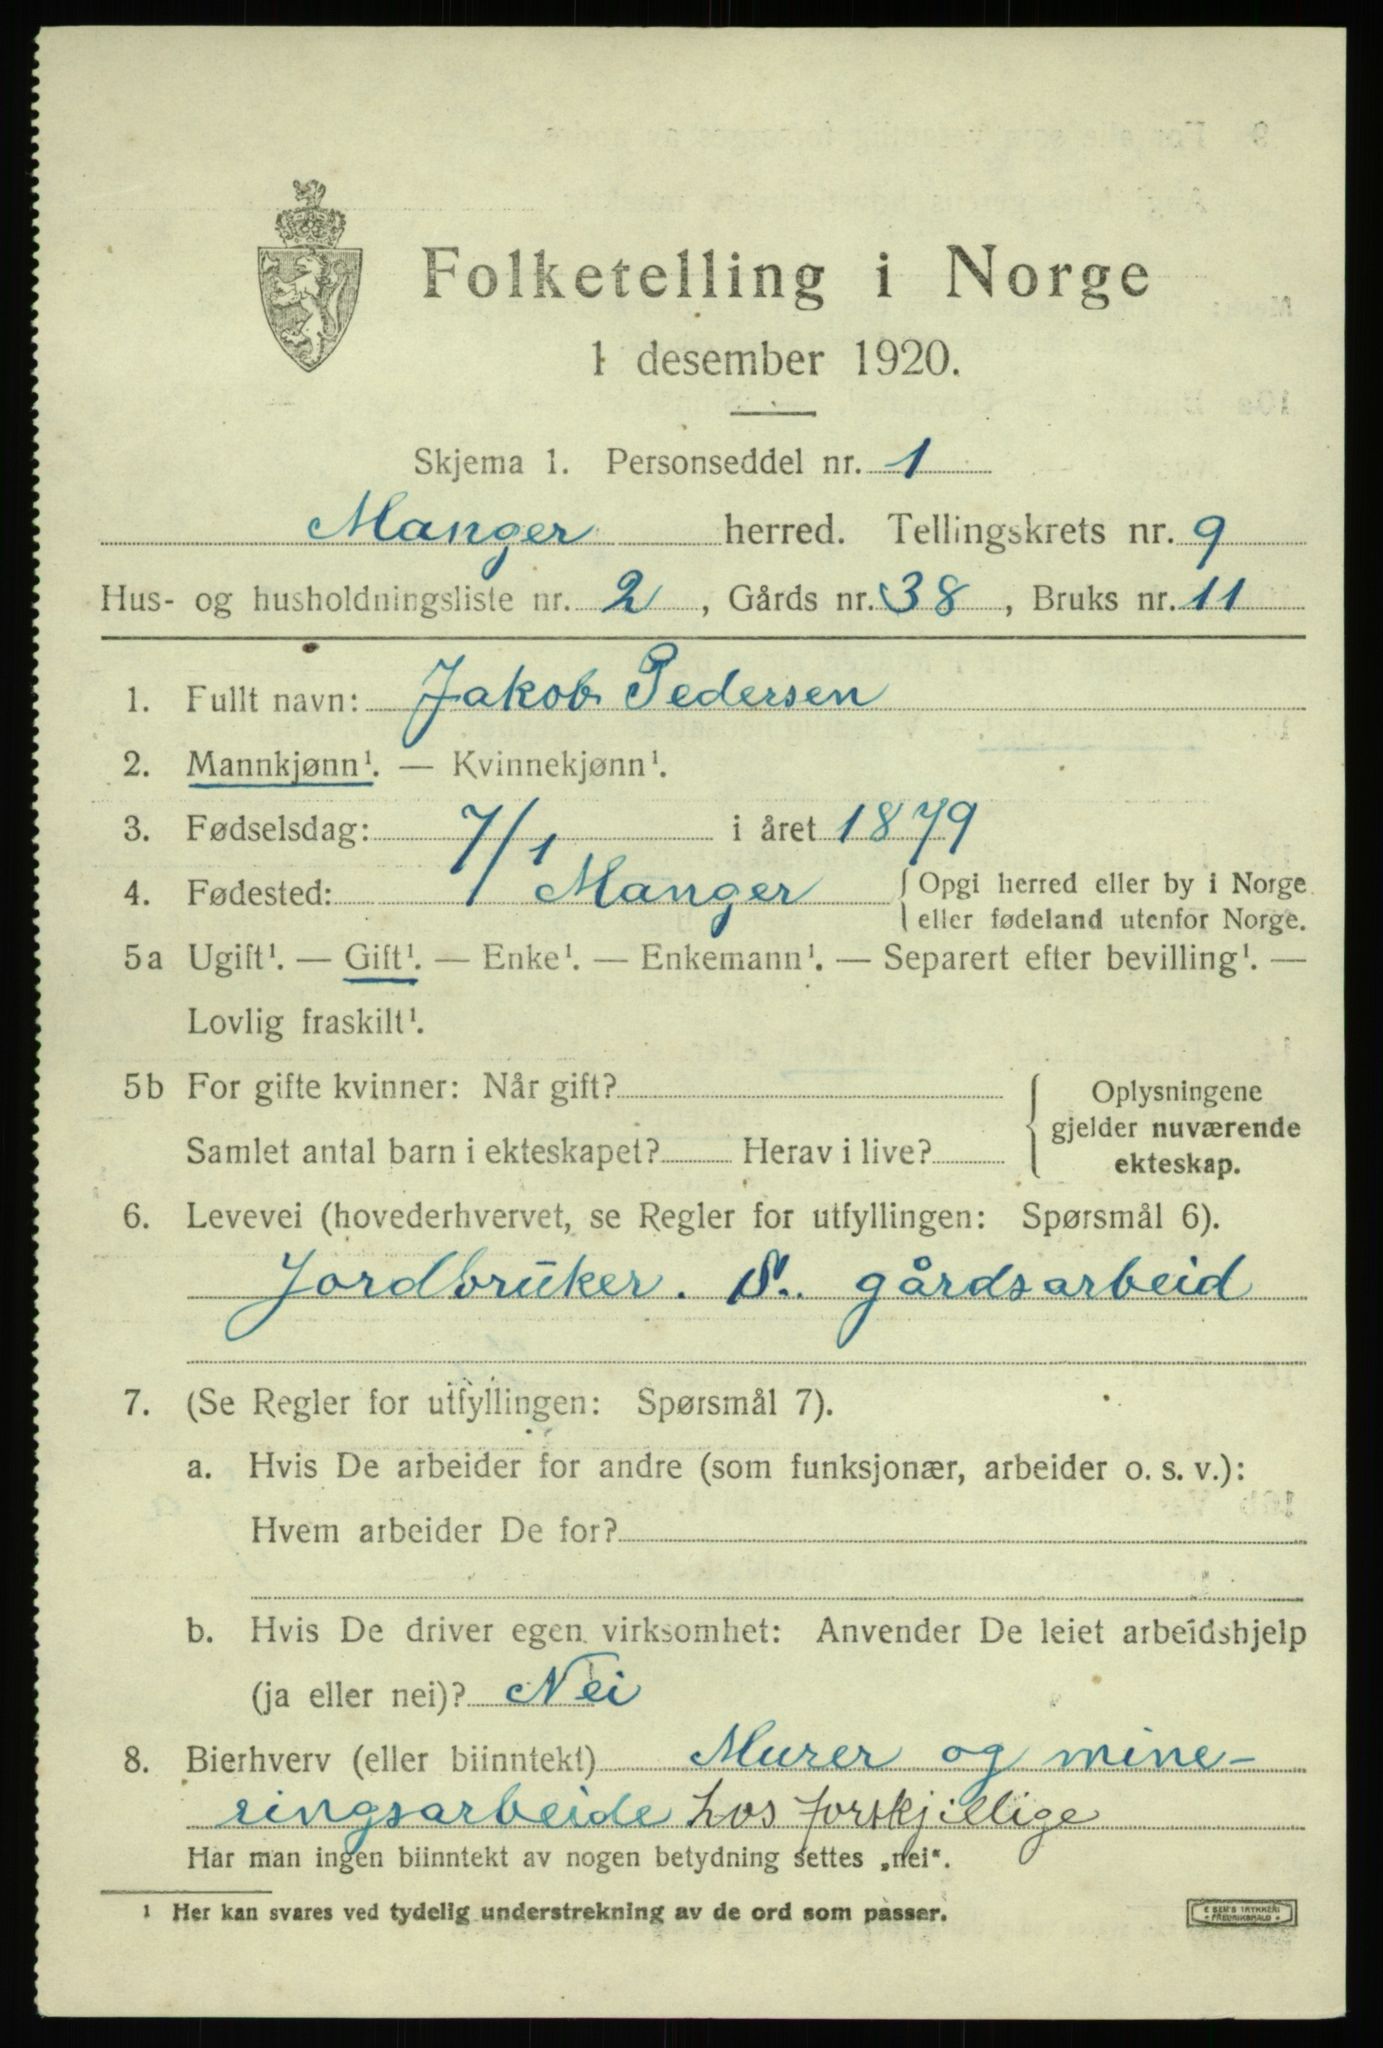 Folketelling i Norge
1 desember 1920.
Skjema 1. Personseddel nr. 1
Manger herred. Tellingskrets nr. 9
Hus- og husholdningsliste nr. 2, Gårds nr. 38, Bruks nr. 11
1. Fullt navn: Jakob Pedersen
2. Mannkjønn¹. — Kvinnekjønn¹.
3. Fødselsdag: 7/1 i året 1879
4. Fødested: Manger { Opgi herred eller by i Norge
eller fødeland utenfor Norge.
5a Ugift¹. — Gift¹. — Enke¹. — Enkemann¹. — Separert efter bevilling¹. —
Lovlig fraskilt¹.
5b For gifte kvinner: Når gift?
Samlet antal barn i ekteskapet? Herav i live?
{ Oplysningene
gjelder nuværende
ekteskap.
6. Levevei (hovederhvervet, se Regler for utfyllingen: Spørsmål 6).
Jordbruker. S. gårdsarbeid
7. (Se Regler for utfyllingen: Spørsmål 7).
a. Hvis De arbeider for andre (som funksjonær, arbeider o. s. v.):
Hvem arbeider De for?
b. Hvis De driver egen virksomhet: Anvender De leiet arbeidshjelp
(ja eller nei)? Nei
8. Bierhverv (eller biinntekt) Murer og mine-
ringsarbeide hos forskjellige
Har man ingen biinntekt av nogen betydning settes „nei".
¹ Her kan svares ved tydelig understrekning av de ord som passer.